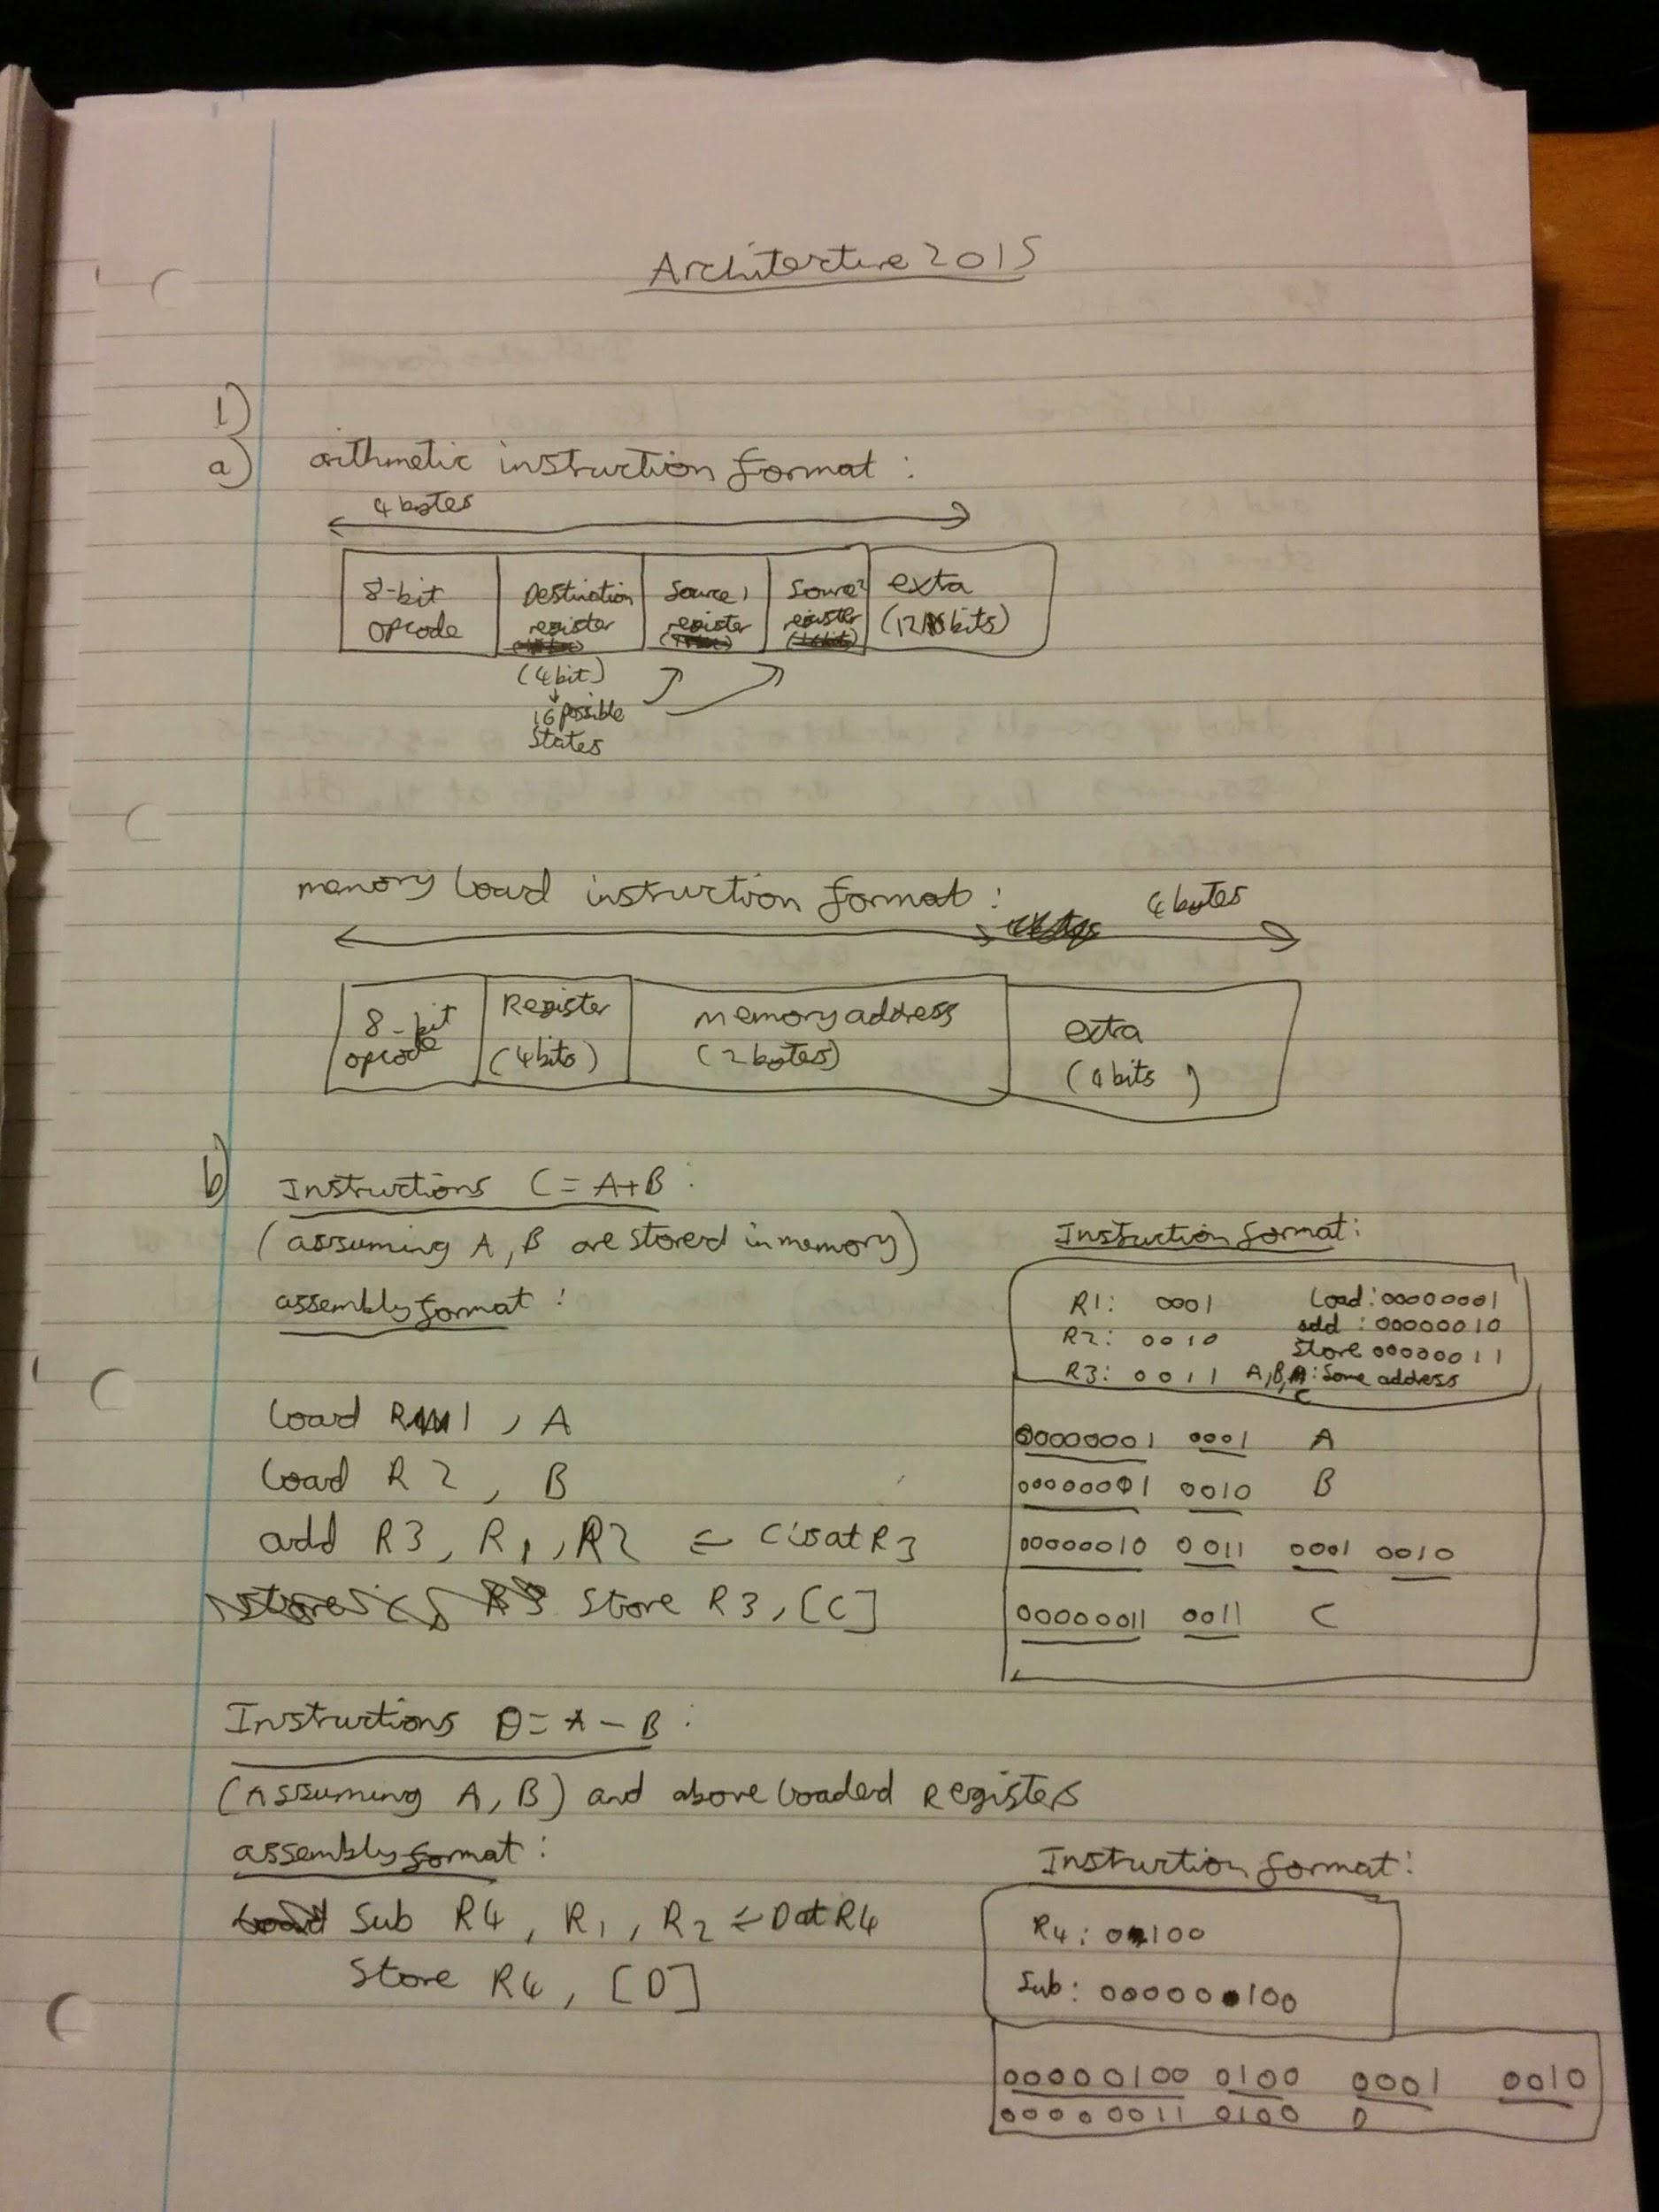 Architecture 2015
1)
a) arithmetic instruction format :
4 bytes
8-bit opcode
Destination register
Source 1 register
Source 2 register
extra (12 bits)
(4 bit)
16 possible
states
memory load instruction format :
4 bytes
8-bit opcode
Register (4 bits)
memory address (2 bytes)
extra (4 bits)
b) Instructions C = A+B :
(assuming A, B are stored in memory)
assembly format :
load R1, A
load R2, B
add R3, R1, R2 ⇐ C is at R3
Store R3, [C]
Instruction format :
R1: 0001 Load: 00000001
R2: 0010 add : 00000010
Store 00000011
R3: 0011 A,B, : Some address
C
00000001 0001 A
00000001 0010 B
00000010 0011 0001 0010
00000011 0011 C
Instructions D = A - B :
(Assuming A, B) and above loaded Registers
assembly format :
Sub R4, R1, R2 ⇐ D at R4
Store R4, [D]
Instruction format :
R4: 0100
Sub: 00000100
00000100 0100 0001 0010
00000011 0100 D